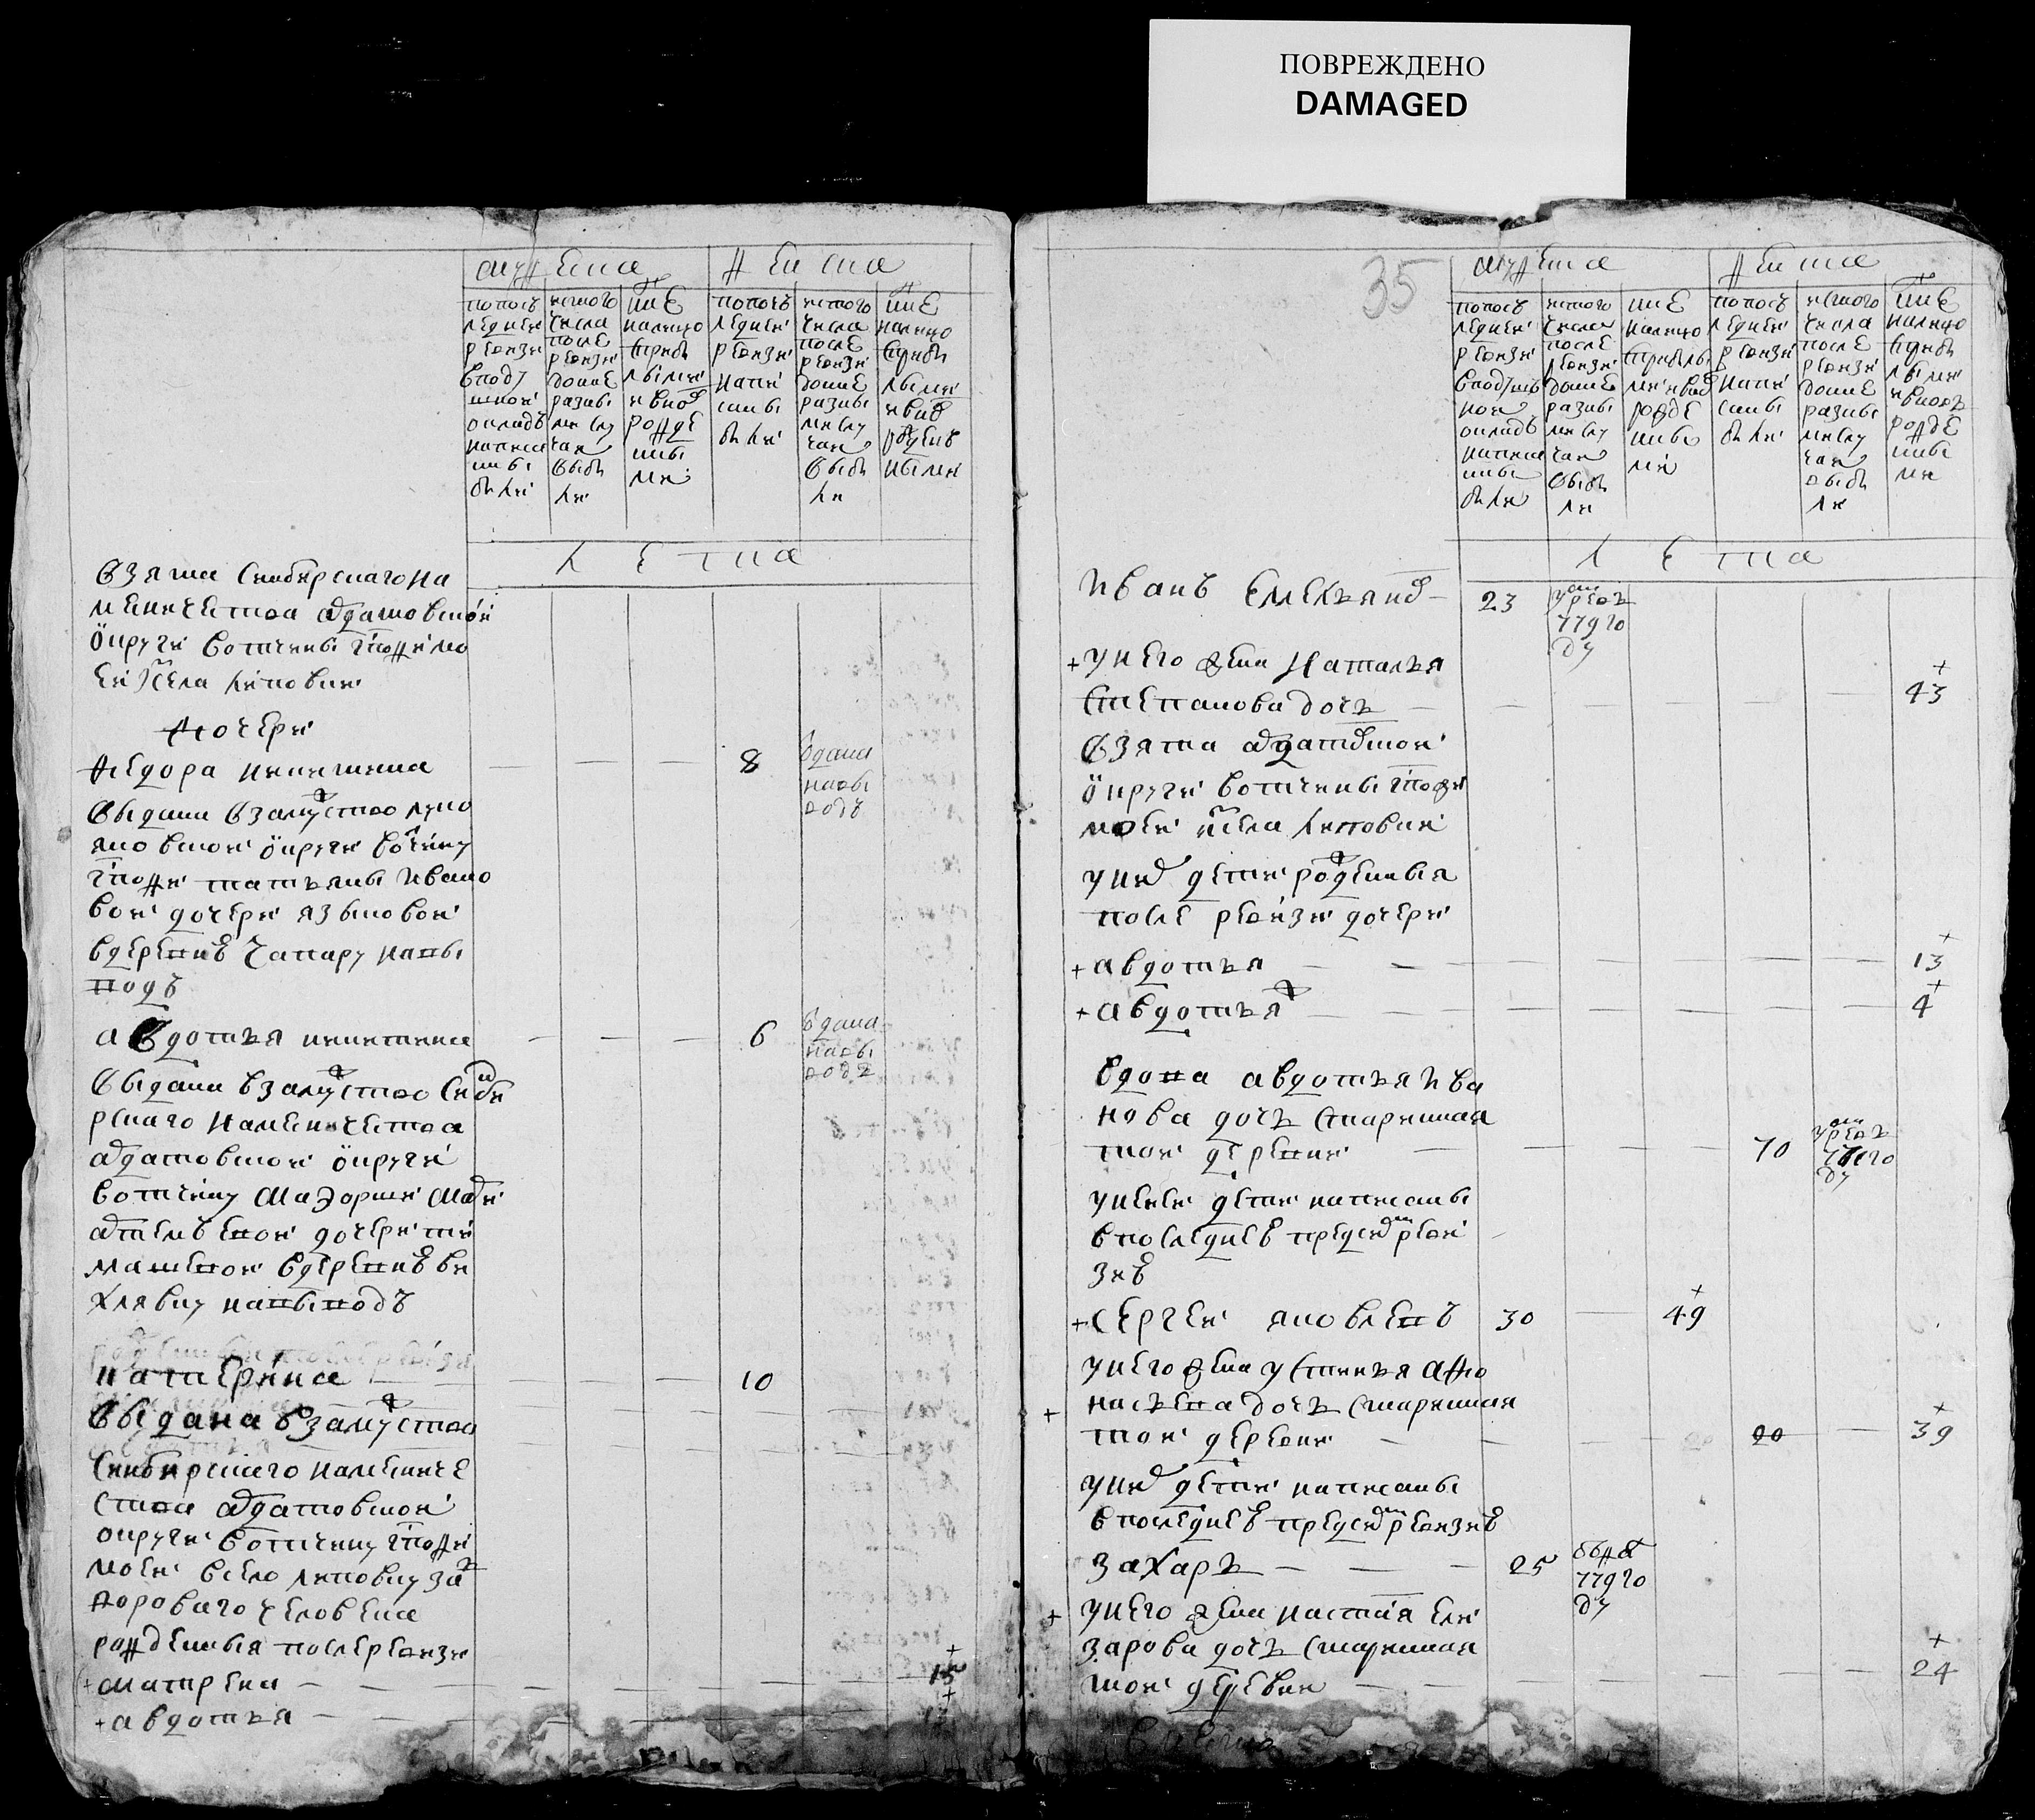 ПОВРЕЖДЕНО
DAMAGED
мужеска
женска
попосъ
ледней
ревизи
вподу
шной
окладъ
написа
ны
были
исного
числа
после
ревизи
доние
разны
ми слу
чаи
выбы
ли
ние
налицо
прибы
лыми
ивнов
рожде
ны
ми
попосъ
ледней
ревизи
напи
саны
были
исного
числа
после
ревизи
доние
разны
ми слу
чаи
выбы
ли
ние
налицо
прибы
лыми
ивнов
рожден
ными
лета
взята синбирскаго на
месничества ардатовской
округи вотчины гпожи мо
ей исела липовки
дочери
Федора никитина
8
вдана
нанъ
водъ
выдана взамуство луко
яновской округи вотчину
гпожи татьяны ивано
вой дочери языковой
вдеревнъ чапару навы
водъ
авдотья никитина
6
вдана
навы
водъ
выдана взамуство синби
рскаго намесничества
ардатовской округи
вотчину маэорши
дочери ти
машевой вдеревнъ
хлявку навыводъ
катерина
10
выдана взамуство
синбирскаго намесниче
ства ардатовской
округи вотчину гпожи
моей всело липовку за
дороваго человека
рожденыя послеревизи
+ матрена
15
+ авдотья
35
мужеска
женска
попосъ
ледней
ревизи
вподуш
ной
окладъ
написа
ны
были
исного
числа
после
ревизи
доние
разны
ми слу
чаи
выбы
ли
ние
налицо
прибылы
ми ивнов
рожде
ны
ми
попосъ
ледней
ревизи
напи
саны
были
исного
числа
после
ревизи
доние
разны
ми слу
чаи
выбы
ли
ние
налицо
прибы
лыми
ивновъ
рожде
ны
ми
лета
иванъ емельянов
23
умре въ
го
ду
+ унего жена наталья
степанова дочь
43
взята ардатовской
округи вотчины гпожи
моей исела липовки
уних дети рожденыя
после ревизи дочери
+ авдотья
13
+ авдотья
4
вдова авдотья ива
нова дочь старинная
той деревни
70
умре въ
го
ду
унеей дети написаны
впоследнеъ предсей реви
зиъ
+ сергей яковлевъ
30
49
унего жена устинья афо
насьева дочь старинная
той деревни
20
39
уних дети написаны
впоследнеъ предсей ревизиъ
захаръ
25
бежа
го
ду
+ унего жена настасья ели
зарова дочь старинная
той деревни
24